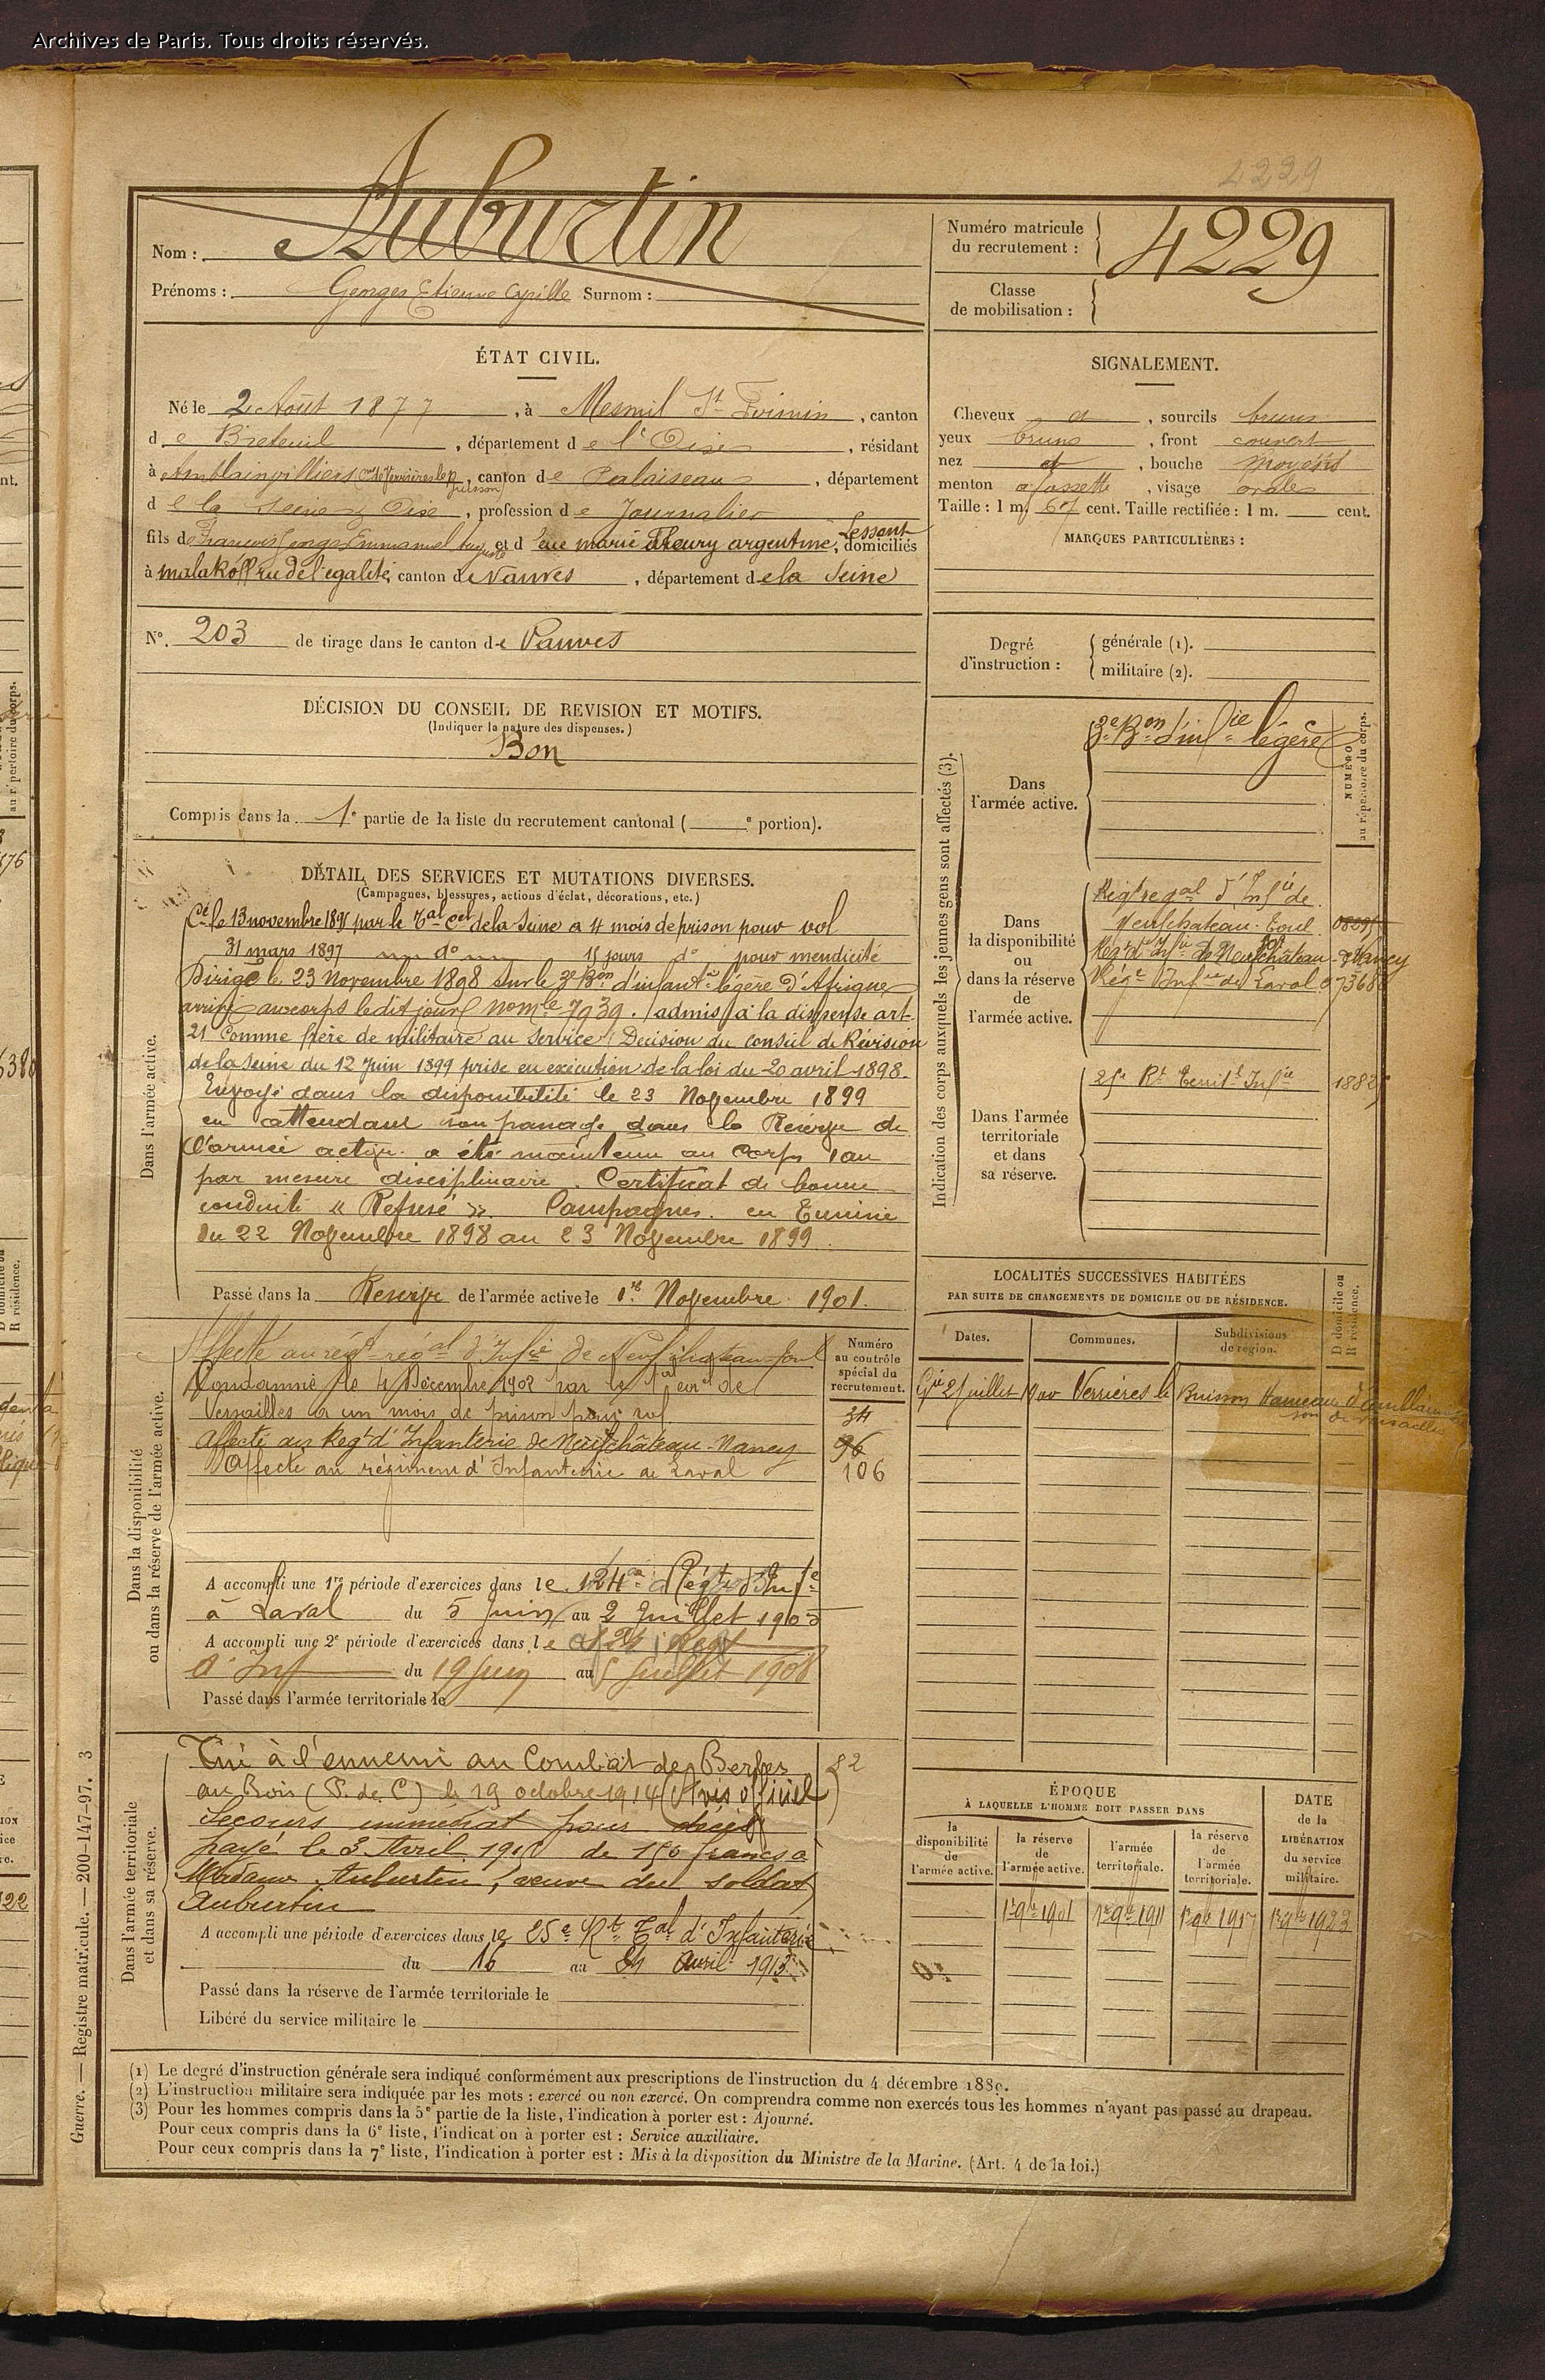 Archives de Paris. Tous droits réservés.
4229
Nom : Auburtin
Prénoms : Georges Etienne Cyrille Surnom :
Numéro matricule
du recrutement : 4229
Classe
de mobilisation :
ÉTAT CIVIL.
Né le 2 Août 1877, à Mesnil St Firmin, canton
de Breteuil, département de l'Oise, résidant
à Amblainvilliers cne de Verrières le Buisson, canton de Palaiseau, département
de la Seine & Oise, profession de Journalier
fils de François Georges Emmanuel Auguste et d'eue marie Fleury argentine Lessant, domiciliés
à malakoff rue de l'egalité, canton de Vanves, département de la Seine
SIGNALEMENT.
Cheveux et, sourcils bruns
yeux bruns, front couvert
nez et, bouche moyens
menton à fossette, visage ovale
Taille : 1 m. 67 cent. Taille rectifiée : 1 m. cent.
MARQUES PARTICULIÈRES :
N°. 203 de tirage dans le canton de Vanves
Degré
d'instruction :
générale (1).
militaire (2).
DÉCISION DU CONSEIL DE REVISION ET MOTIFS.
(Indiquer la nature des dispenses.)
Bon
Compris dans la 1e partie de la liste du recrutement cantonal ( e portion).
DÉTAIL DES SERVICES ET MUTATIONS DIVERSES.
(Campagnes, blessures, actions d'éclat, décorations, etc.)
Dans l'armée active.
Cé le 13 novembre 1896 par le Tal Cel de la Seine à 4 mois de prison pour vol
31 mars 1897 do 15 jours do pour mendicité
Dirigé le 23 Novembre 1898 sur le 3e Bon d'infantie légère d'Afrique
arrivé au corps le dit jour nomle 7939. admis à la dispense art.
21 Comme frère de militaire au service (Décision du conseil de Révision
de la Seine du 12 Juin 1899 prise en exécution de la loi du 20 avril 1898.
Envoyé dans la disponibilité le 23 Novembre 1899
en attendant son passage dans la Réserve de
l'armée active. a été maintenu au corps 1 an
par mesure disciplinaire. Certificat de bonne
conduite « Refusé ». Campagnes. en Tunisie
du 22 Novembre 1898 au 23 Novembre 1899.
Passé dans la Réserve de l'armée active le 1er Novembre 1901.
Indication des corps auxquels les jeunes gens sont affectés (3).
NUMÉRO
au répertoire du corps.
Dans
l'armée active.
3e Bon d'infie légère
Dans
la disponibilité
ou
dans la réserve
de
l'armée active.
Régt regal d'Infie de
Neufchateau-Toul
Régt d'Infie de Neufchâteau-Nancy
Régt Infie de Laval
Dans l'armée
territoriale
et dans
sa réserve.
25e Rt Territl Infie
LOCALITÉS SUCCESSIVES HABITÉES
PAR SUITE DE CHANGEMENTS DE DOMICILE OU DE RÉSIDENCE.
D domicile ou
R résidence.
Dates. Communes. Subdivisions
de région.
Verrières le Buisson Hameau d'Amblainvilliers
Dans la disponibilité
ou dans la réserve de l'armée active.
Numéro
au contrôle
spécial du
recrutement.
Affecté au régt régal d'Infie de Neufchateau-Toul
Condamné le 4 Décembre 1902 par le Tal corel de
Versailles à un mois de prison pour vol. 34
Affecté au Régt d'Infanterie de Neufchâteau-Nancy 96
Affecté au régiment d'Infanterie de Laval 106
A accompli une 1re période d'exercices dans le 124e Régt d'Infie
à Laval du 5 Juin au 2 Juillet 1905
A accompli une 2e période d'exercices dans le
d'Inf du 19 Juin au 5 Juillet 1908
Passé dans l'armée territoriale le
Dans l'armée territoriale
et dans sa réserve.
Tué à l'ennemi au Combat de Berles
au Bois (P. de C) le 19 octobre 1914 (Avis officiel)
Secours immédiat pour décès
payé le 3 Avril 1915 de 150 francs à
Madame Auburtin, veuve du soldat
Auburtin
A accompli une période d'exercices dans le 25e Rt Tal d'Infanterie
du 16 au 24 Avril 1913
Passé dans la réserve de l'armée territoriale le
Libéré du service militaire le
ÉPOQUE
À LAQUELLE L'HOMME DOIT PASSER DANS
DATE
de la
LIBÉRATION
du service
militaire.
la
disponibilité
de
l'armée active.
la réserve
de
l'armée active.
l'armée
territoriale.
la réserve
de
l'armée
territoriale.
1er 9bre 1901 1er 9bre 1911 1er 9bre 1917 1er 9bre 1923
(1) Le degré d'instruction générale sera indiqué conformément aux prescriptions de l'instruction du 4 décembre 1889.
(2) L'instruction militaire sera indiquée par les mots : exercé ou non exercé. On comprendra comme non exercés tous les hommes n'ayant pas passé au drapeau.
(3) Pour les hommes compris dans la 5e partie de la liste, l'indication à porter est : Ajourné.
Pour ceux compris dans la 6e liste, l'indication à porter est : Service auxiliaire.
Pour ceux compris dans la 7e liste, l'indication à porter est : Mis à la disposition du Ministre de la Marine. (Art. 4 de la loi.)
Guerre. — Registre matricule. — 200-147-97. 3